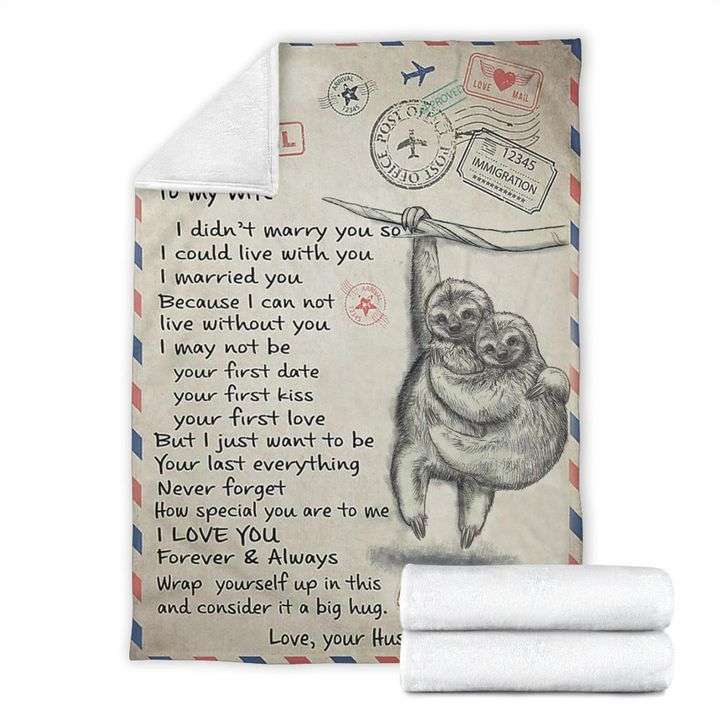 ARRIVAL
12345
APPROVED
LOVE MAIL
POST OFFICE POST OFFICE
12345
IMMIGRATION
L
To my wife
I didn't marry you so
I could live with you
I married you
Because I can not
live without you
ARRIVAL
12345
I may not be
your first date
your first kiss
your first love
But I just want to be
Your last everything
Never forget
How special you are to me
I LOVE YOU
Forever & Always
Wrap yourself up in this
and consider it a big hug.
Love, your Hus